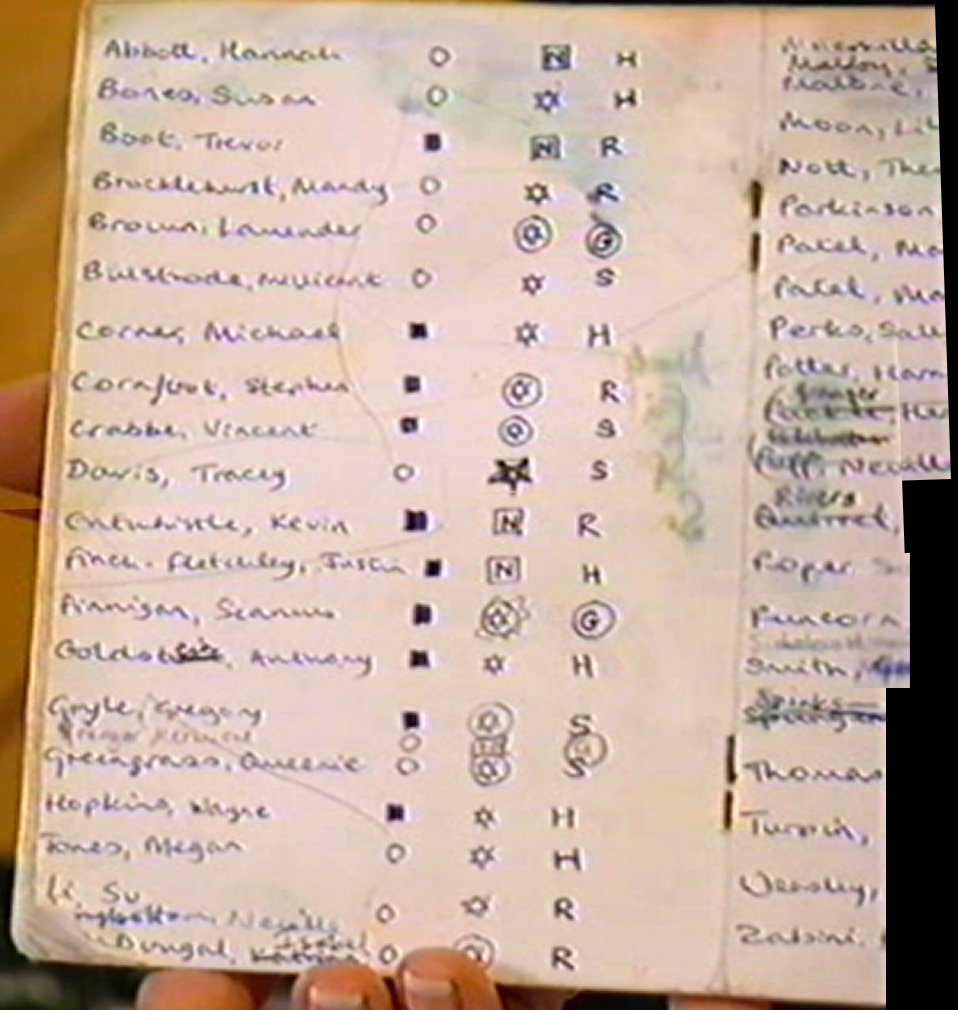 Abbott, Hannah N H
Bones, Susan H
Boot, Trevor N R
Brocklehurst, Mandy R
Brown, Lavender G
Bulstrode, Millicent S
Corner, Michael H
Cornfoot, Stephen R
Crabbe, Vincent S
Davis, Tracey S
Entwhistle, Kevin N R
Finch-Fletchley, Justin N H
Finnigan, Seamus G
Anthony H
Goyle, Gregory S
Greengrass, Queenie S
Hopkins, Wayne H
Jones, Megan H
Li, Su R
Neville
Dungal, Isobel R
Malfoy,
Malone,
Moon, Lil
Nott, Theo
Parkinson
Patel, Ma
Patel,
Perks, Sall
Potter, Harr
Granger
Puff, Neville
Rivers
Roper, S
Runcorn
Smith,
Spinks
Thomas
Turpin,
Weasley,
Zabini,